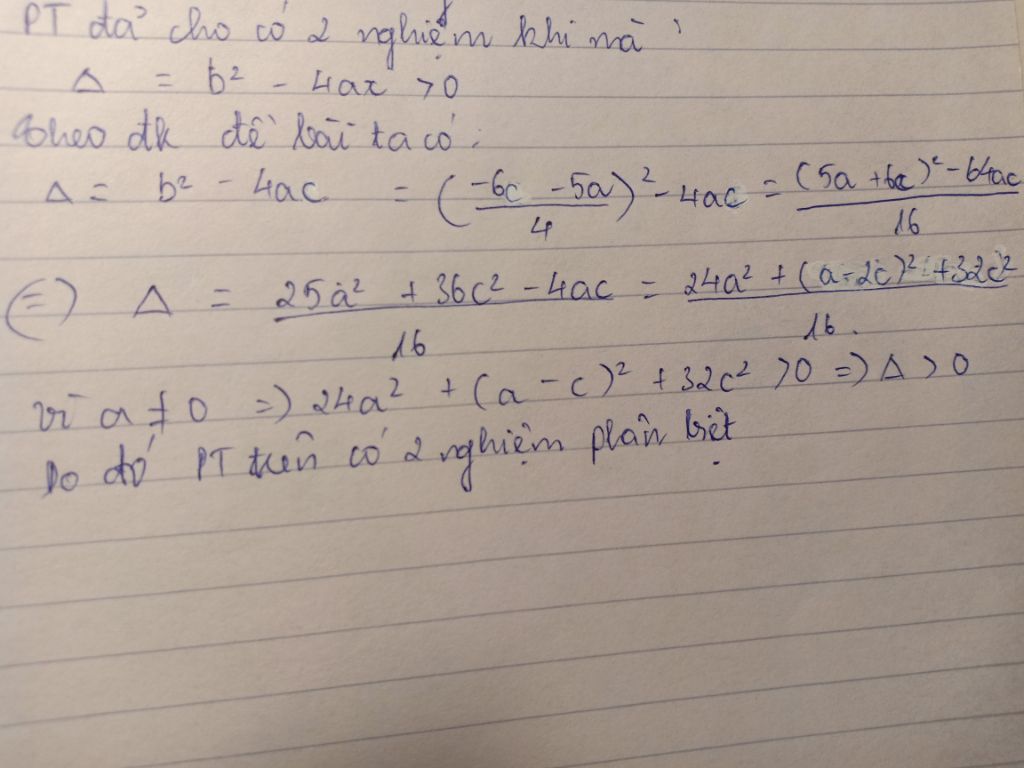 PT đã cho có 2 nghiệm khi mà
Δ = b² - 4ac > 0
theo đk đề bài ta có:
Δ = b² - 4ac = (\frac{-6c - 5a}{4})² - 4ac = \frac{(5a + 6c)² - 64ac}{16}
(=) Δ = \frac{25a² + 36c² - 4ac}{16} = \frac{24a² + (a - 2c)² + 32c²}{16}.
vì a ≠ 0 => 24a² + (a - c)² + 32c² > 0 => Δ > 0
Do đó PT trên có 2 nghiệm phân biệt